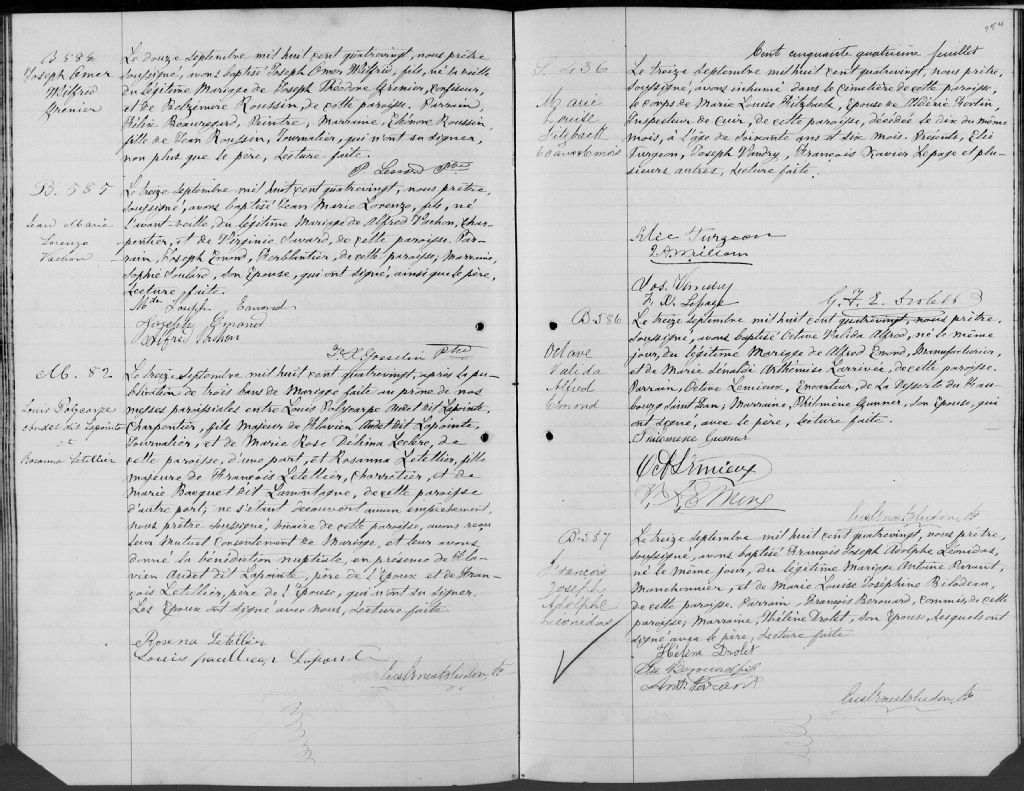 B 584
Joseph Omer
Wilfrid
Grenier
Le douze septembre mil huit cent quatrevingt, nous prêtre
soussigné, avons baptisé Joseph Omer Wilfrid, fils, né la veille
du légitime Mariage de Joseph Théodore Grenier, Confiseur,
et de Belzémire Roussin, de cette paroisse. Parrain,
Félix Beauregard, Peintre, Marraine, Elénore Roussin,
fille de Jean Roussin, Journalier, qui n'ont su signer,
non plus que le père, Lecture faite.
P. Lessard Ptre
B. 585
Jean Marie
Lorenzo
Vachon
Le treize septembre mil huit cent quatrevingt, nous prêtre,
soussigné, avons baptisé Jean Marie Lorenzo, fils, né
l'avant-veille, du légitime Mariage de Alfred Vachon, Char-
pentier, et de Virginie Savard, de cette paroisse, Par-
rain, Joseph Emond, Ferblantier, de cette paroisse; Marraine,
Sophie Soulard, son Epouse, qui ont signé, ainsi que le père,
Lecture faite.
Mde Joseph Emond
Joseph Emond
Alfred Vachon
F. X. Gosselin Ptre
M. 82.
Louis Polycarpe
Audet dit Lapointe
et
Rosanna Letellier
Le treize septembre mil huit cent quatrevingt, après la pu-
blication de trois bans de Mariage faite au prône de nos
messes paroissiales entre Louis Polycarpe Audet dit Lapointe,
Charpentier, fils majeur de Flavien Audet dit Lapointe,
Journalier, et de Marie Rose Délima Leclerc, de
cette paroisse, d'une part, et Rosanna Letellier, fille
majeure de François Letellier, Charretier, et de
Marie Bacquet dit Lamontagne, de cette paroisse
d'autre part; ne s'étant découvert aucun empêchement,
nous prêtre soussigné, vicaire de cette paroisse, avons reçu
leur mutuel consentement de Mariage, et leur avons
donné la bénédiction nuptiale, en présence de Fla-
vien Audet dit Lapointe, père de l'Epoux et de Fran-
çois Letellier, père de l'Epouse, qui n'ont su signer.
Les Epoux ont signé avec nous, Lecture faite
Rosena Letellier
Louis Lapointe
154
Cent cinquante quatrième feuillet
S. 436
Marie
Louise
Fitzback
60 ans 6 mois
Le treize septembre mil huit cent quatrevingt, nous prêtre,
soussigné, avons inhumé dans le cimetière de cette paroisse,
le corps de Marie Louise Fitzback, Epouse de Aldéric Fortin,
Inspecteur de Cuir, de cette paroisse, décédée le dix du même
mois, à l'âge de soixante ans et six mois. Présents, Elie
Turgeon, Joseph Vandry, François Xavier Lepage et plu-
sieurs autres, Lecture faite.
Elie Turgeon
Jos. Vandry
F. X. Lepage
G. F. E. Drolet
B. 586
Octave
Valida
Alfred
Emond
Le treize septembre mil huit cent quatrevingt, nous prêtre,
soussigné, avons baptisé Octave Valida Alfred, né le même
jour, du légitime Mariage de Alfred Emond, Manufacturier,
et de Marie Arthémise Larrivée, de cette paroisse.
Parrain, Octave Lemieux, Encanteur, de La Desserte du Fau-
bourg Saint Jean; Marraine, Philomène Gunner, son Epouse, qui
ont signé, avec le père, Lecture faite.
Philomene Gunner
O Lemieux
B. 587
François
Joseph
Adolphe
Léonidas
Le treize septembre mil huit cent quatrevingt, nous prêtre,
soussigné, avons baptisé François Joseph Adolphe Léonidas,
né le même jour, du légitime Mariage Antoine Parant,
Manchonnier, et de Marie Louise Joséphine Bilodeau,
de cette paroisse. Parrain, François Berouard, Commis, de cette
paroisse; Marraine, Hélène Drolet, son Epouse, lesquels ont
signé avec le père, Lecture faite.
Hélène Drolet